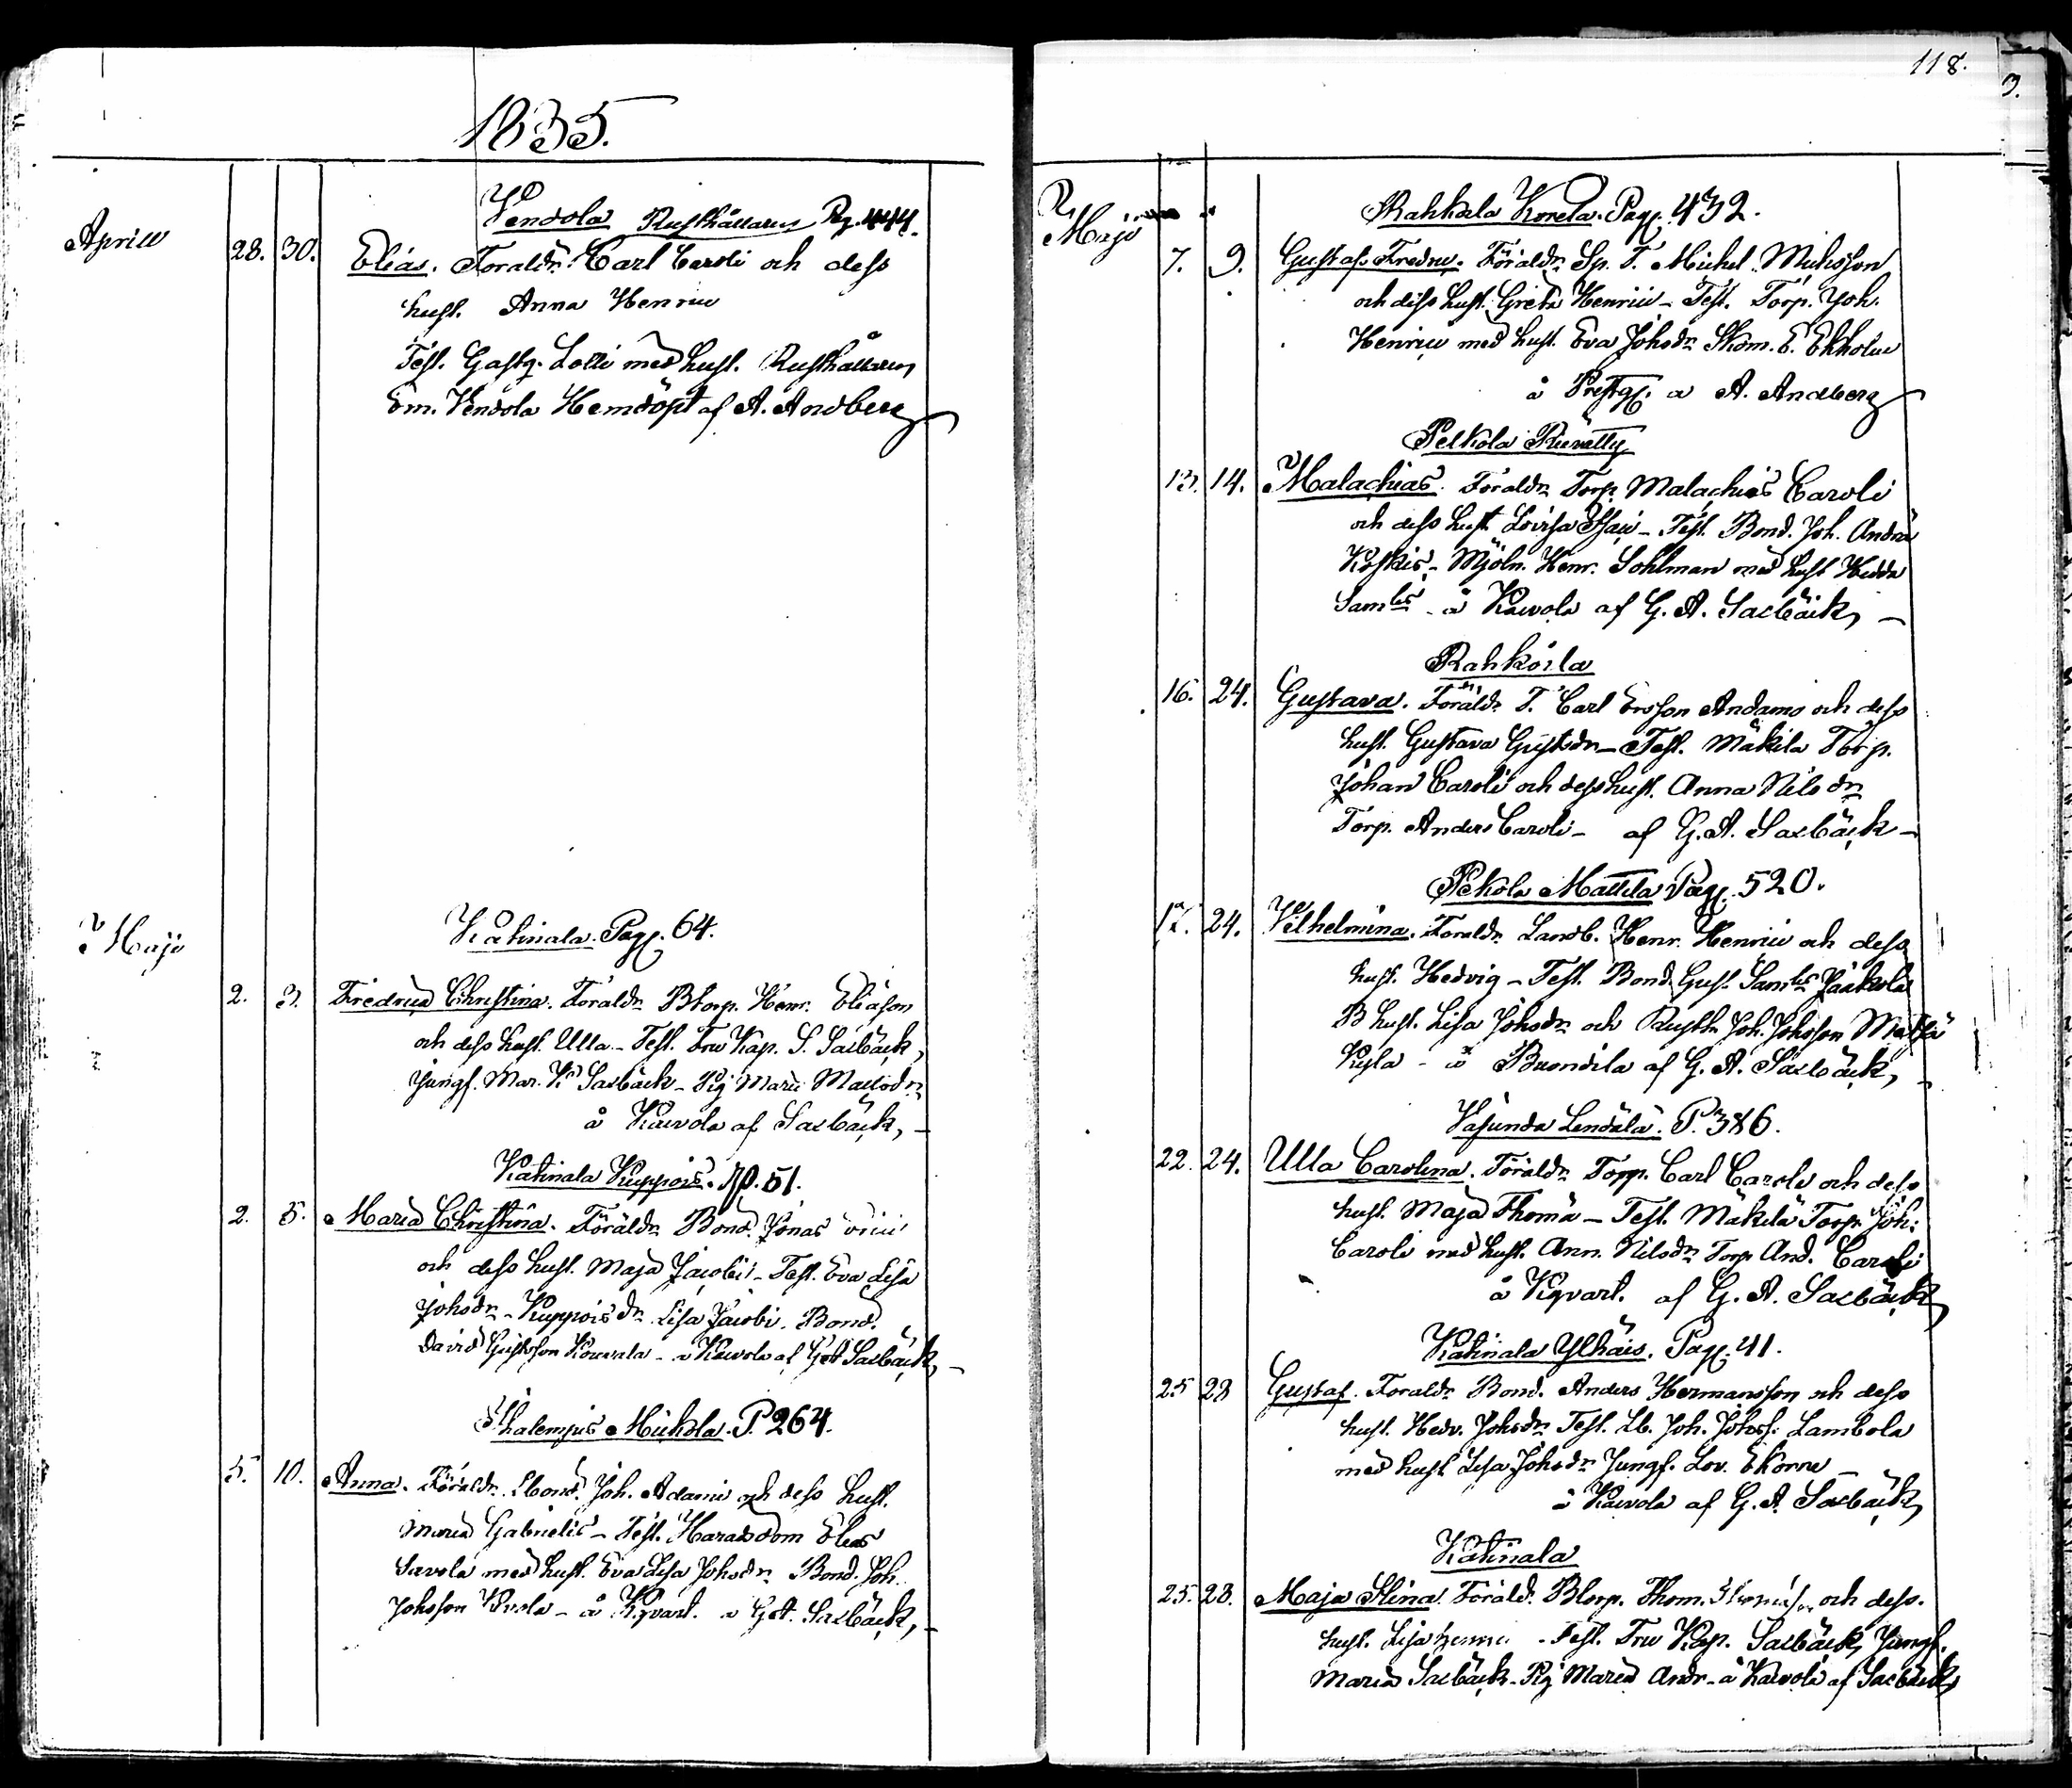 1835.
Aprill
Vendola Rusthållaren Pag. 444.
28. 30. Elias. Föräldr. Carl Caroli och dess
hust. Anna Henrici
Test. Gästg. Lotti med hust. Rusthållaren
Em. Vendola Hemdöpt af A. Andberg
Maji
Katinala. Pag. 64.
2. 3. Fredrica Christina. Föräldr. Btorp. Henr. Eliasson
och dess hust. Ulla - Test. Fru Kap. S. Sacbäck,
Jungf. Mar. Sacbäck - Pig Maria
å Kawola af Sacbäck,
Katinala Kuppois. P. 51.
2. 5. Maria Christina. Föräldr. Bond. Jonas
och dess hust. Maja Jacobi - Test. Eva Lisa
Johsdr. Kuppois dr. Lisa Jacobi. Bond.
David Gustafson - å Kawola af G. A. Sacbäck,
Miekola. P. 264.
5. 10. Anna. Föräldr. Joh. Adami och dess hust.
Maria Gabrielis - Test. Häradsdom Elias
Savola med hust. Eva Lisa Johsdr. Bond. Joh.
Johsson - å Kqvart. a G. A. Sacbäck,
118.
3.
Maji
Rahkola Korela. Pag. 432.
7. 9. Gustaf Fredric. Föräldr. Sp. T. Michel Michsson
och dess hust. Greta Henrici - Test. Torp. Joh.
Henrici med hust. Eva Johsdr. Skom. E. Ekholm
å Prestg. a A. Andberg
Pelkola
13. 14. Malachias. Föräldr. Torp. Malachias Caroli
och dess hust. Lovisa Isaci - Test. Bond. Joh. Andrae
Koskis - Mjöln. Henr. Sohlman med hust Hedda
Samls - å Kawola af G. A. Sacbäck,
Rahkoila
16. 24. Gustava. Föräldr. T. Carl Ersson Andams och dess
hust. Gustava Gustsdr. - Test. Mäkilä Torp.
Johan Caroli och dess hust. Anna Nilsdr.
Torp. Anders Caroli - af G. A. Sacbäck
Pekola Mattila Pag. 520.
17. 24. Vilhelmina. Föräldr. Landb. Henr. Henrici och dess
hust. Hedvig - Test. Bond. Gust. Samls
B hust. Lisa Johsdr. och Rusth. Joh. Johsson
- å af G. A. Sacbäck,
Vasunda Lendälä. P. 386.
22. 24. Ulla Carolina. Föräldr. Torp. Carl Caroli och dess
hust. Maja Thomæ - Test. Mäkilä Torp. Joh.
Caroli med hust. Ann. Nilsdr. Torp And. Caroli
å Kqvart. af G. A. Sacbäck
Katinala Ylhäis. Pag. 41.
25 28 Gustaf. Föräldr. Bond. Anders Hermansson och dess
hust. Hedv. Johsdr. Test. Lb. Joh. Johss. Lambola
med hust Lisa Johsdr. Jungf. Lov. Ekorre
å Kawola af G. A. Sacbäck
Katinala
25. 28. Maja Stina. Föräld. Btorp. Thom. och dess
hust. Lisa - Test. Fru Kap. Sacbäck, Jungf.
Maria Sacbäck - Pig Maria Andr. - å Kawola af Sacbäck